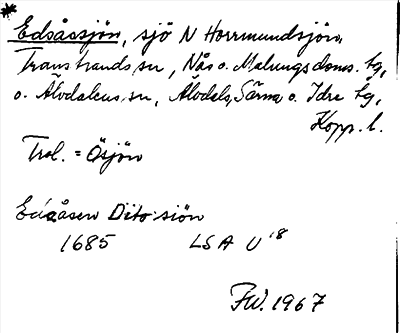 Edsåssjön, sjö N Horrmundsjön,
Transtrands sn, Nås o. Malungs doms. tg,
o. Älvdalens sn, Älvdals, Särna o. Idre tg,
Kopp. l.
Trol. = Ösjön
Edzåsen Dito siön
1685 LSA U 18
FW. 1967